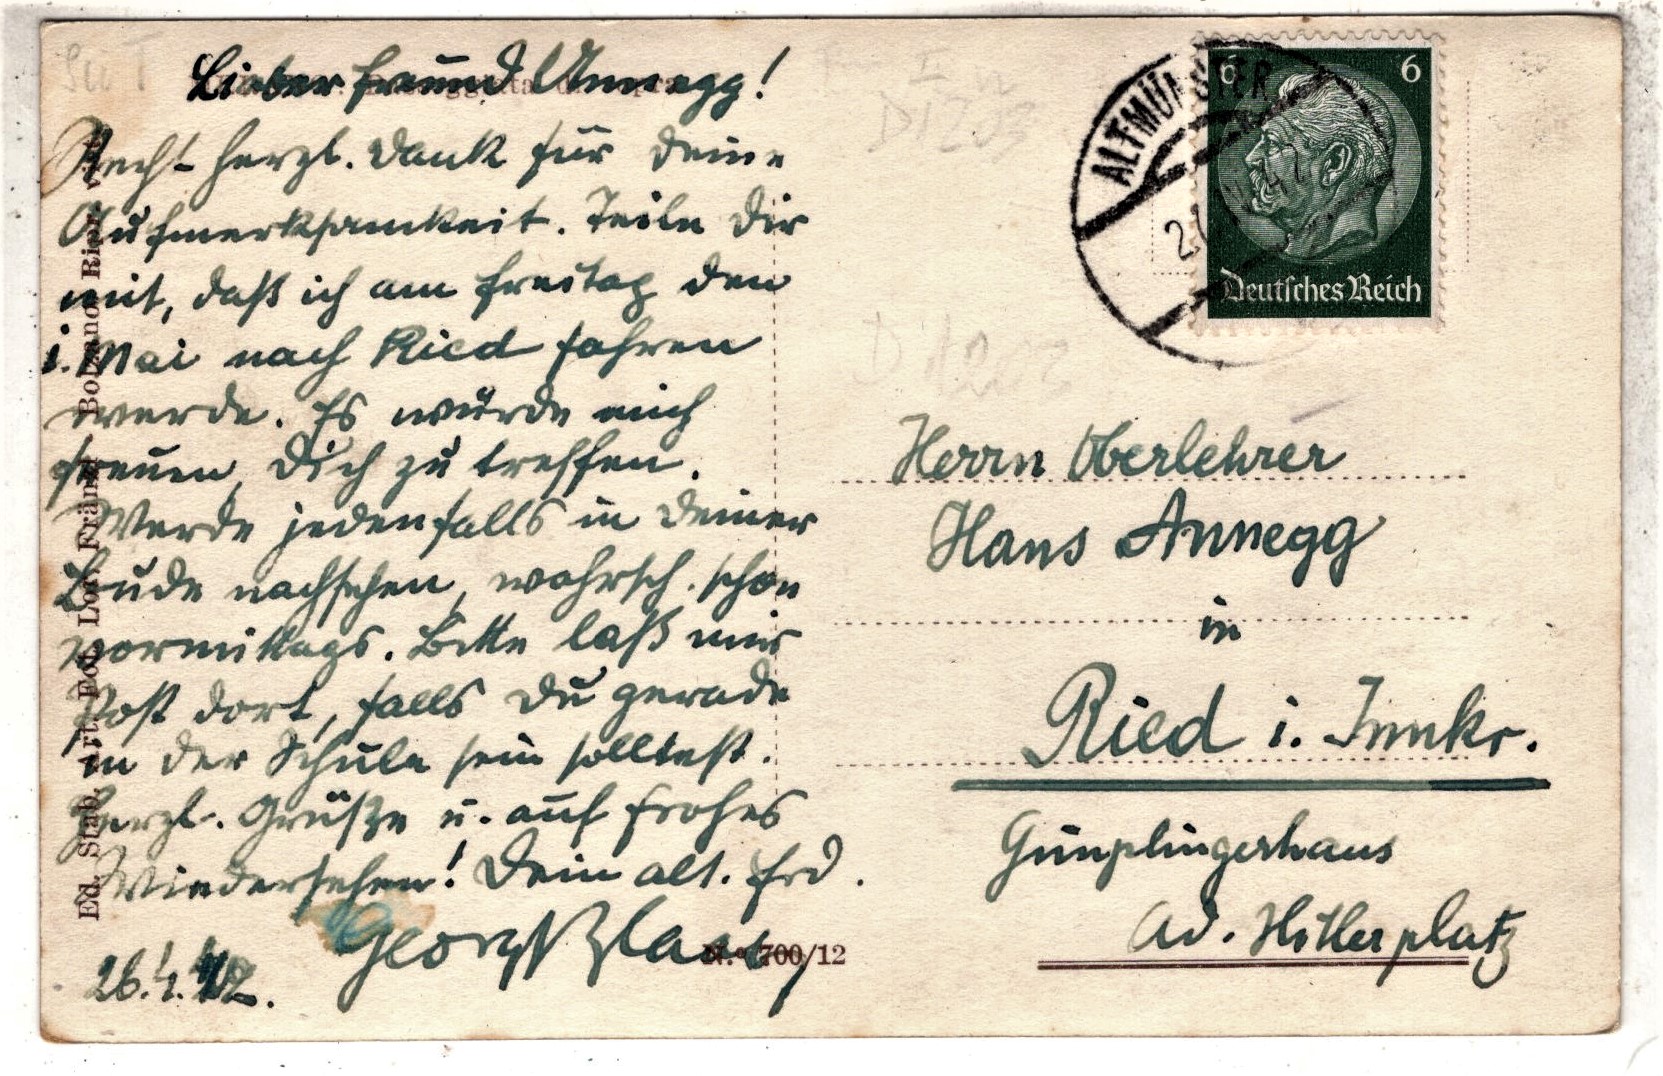 Lieber Freund Annegg!
Recht herzl. Dank für Deine
Aufmerksamkeit. Teile Dir
mit, daß ich am Freitag den
1. Mai nach Ried fahren
werde. Es würde mich
freuen, Dich zu treffen.
Werde jedenfalls in Deiner
Bude nachsehen, wahrsch. schon
vormittags. Bitte laß mir
Post dort, falls Du gerade
in der Schule sein solltest.
Herzl. Grüße u. auf frohes
Wiedersehen! Dein alt. Frd.
Georg
26.4.42.
N.º 700/12
Ed. Stab. Art. Fot. Lor. Fränzl Bolzano
ALTMÜNSTER
6 6
Deutsches Reich
D1203
D 1203
Herrn Oberlehrer
Hans Annegg
in
Ried i. Innkr.
Ad. Hitlerplatz